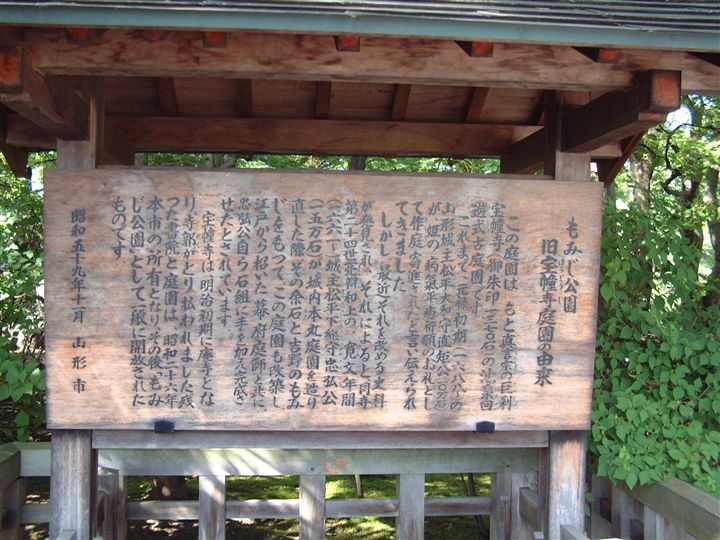 もみじ公園
旧宝幢寺庭園の由来
この庭園は、もと真言宗の巨刹
宝幢寺(御朱印一三七〇石)の池泉回
遊式古庭園です。
これまで、元禄初期(一六八八)の
山形城主松平大和守直矩公(一〇万石)
が、姫の病気平癒祈願のお礼とし
て作庭寄進されたと言い伝えられ
てきました。
しかし、最近それを改める史料
が発見され、それによると、同寺
第二十四世尭辯和上の、寛文年間
(一六六一)城主松平下総守忠弘公
(一五万石)が、城内本丸庭園を造り
直した際、その余石と吉野のもみ
じをもって、この庭園も改築し、
江戸から招いた幕府庭師と共に
忠弘公自ら石組に手を加え完成さ
せたとされています。
宝幢寺は明治初期に廃寺とな
り、寺郭がとり払われましたが、残
った書院と庭園は、昭和二十六年
本市の所有となり、その後「もみ
じ公園」として一般に開放された
ものです。
昭和五十九年十一月 山形市